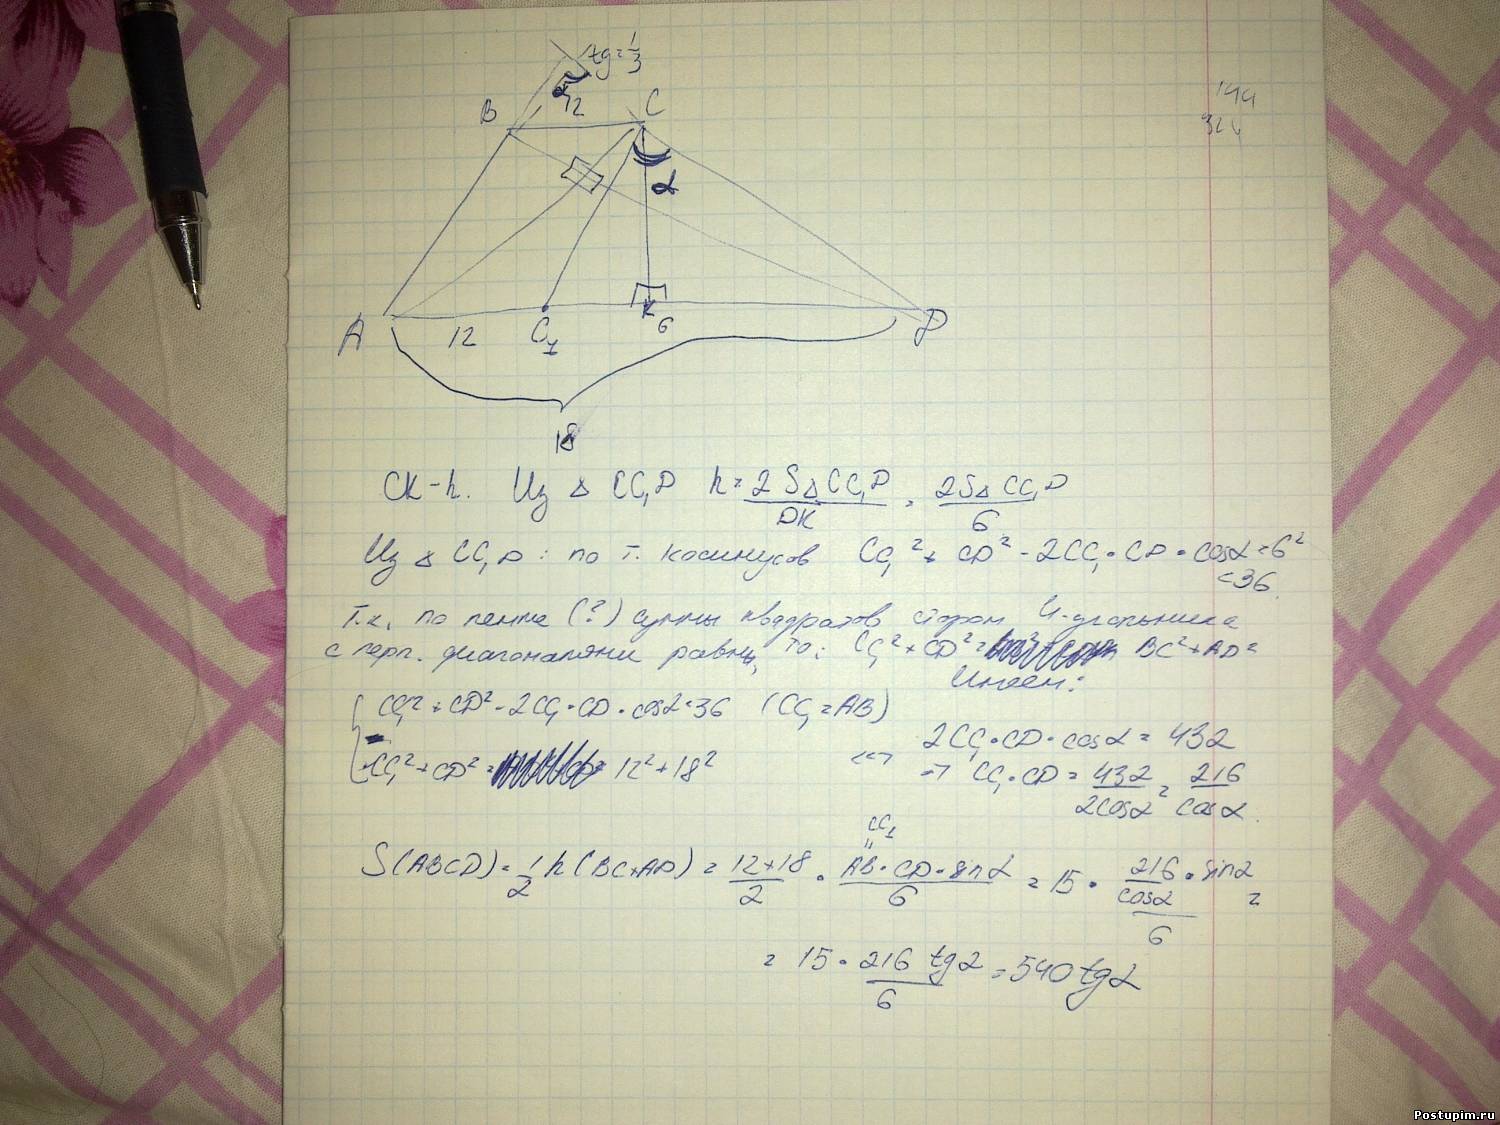 tg = 1/3
α
B 12 C
144
324
α
K
A 12 C₁ 6 D
18
CK – h. Из △ CC₁D h = 2S△CC₁D / DK = 2S△CC₁D / 6
Из △ CC₁D : по т. косинусов CC₁² + CD² - 2CC₁·CD·cosα = 6²
= 36.
Т.к. по лемме (?) суммы квадратов сторон 4-угольника
с перп. диагоналями равны, то: CC₁² + CD² = BC² + AD²
Имеем:
CC₁² + CD² - 2CC₁·CD·cosα = 36 (CC₁ = AB)
CC₁² + CD² = 12² + 18²
<=> 2CC₁·CD·cosα = 432
=> CC₁·CD = 432 / 2cosα = 216 / cosα.
CC₁
"
S(ABCD) = 1/2 h(BC+AD) = (12+18)/2 · AB·CD·sinα / 6 = 15 · 216/cosα · sinα / 6 =
= 15 · 216 tgα / 6 = 540 tgα
Postupim.ru